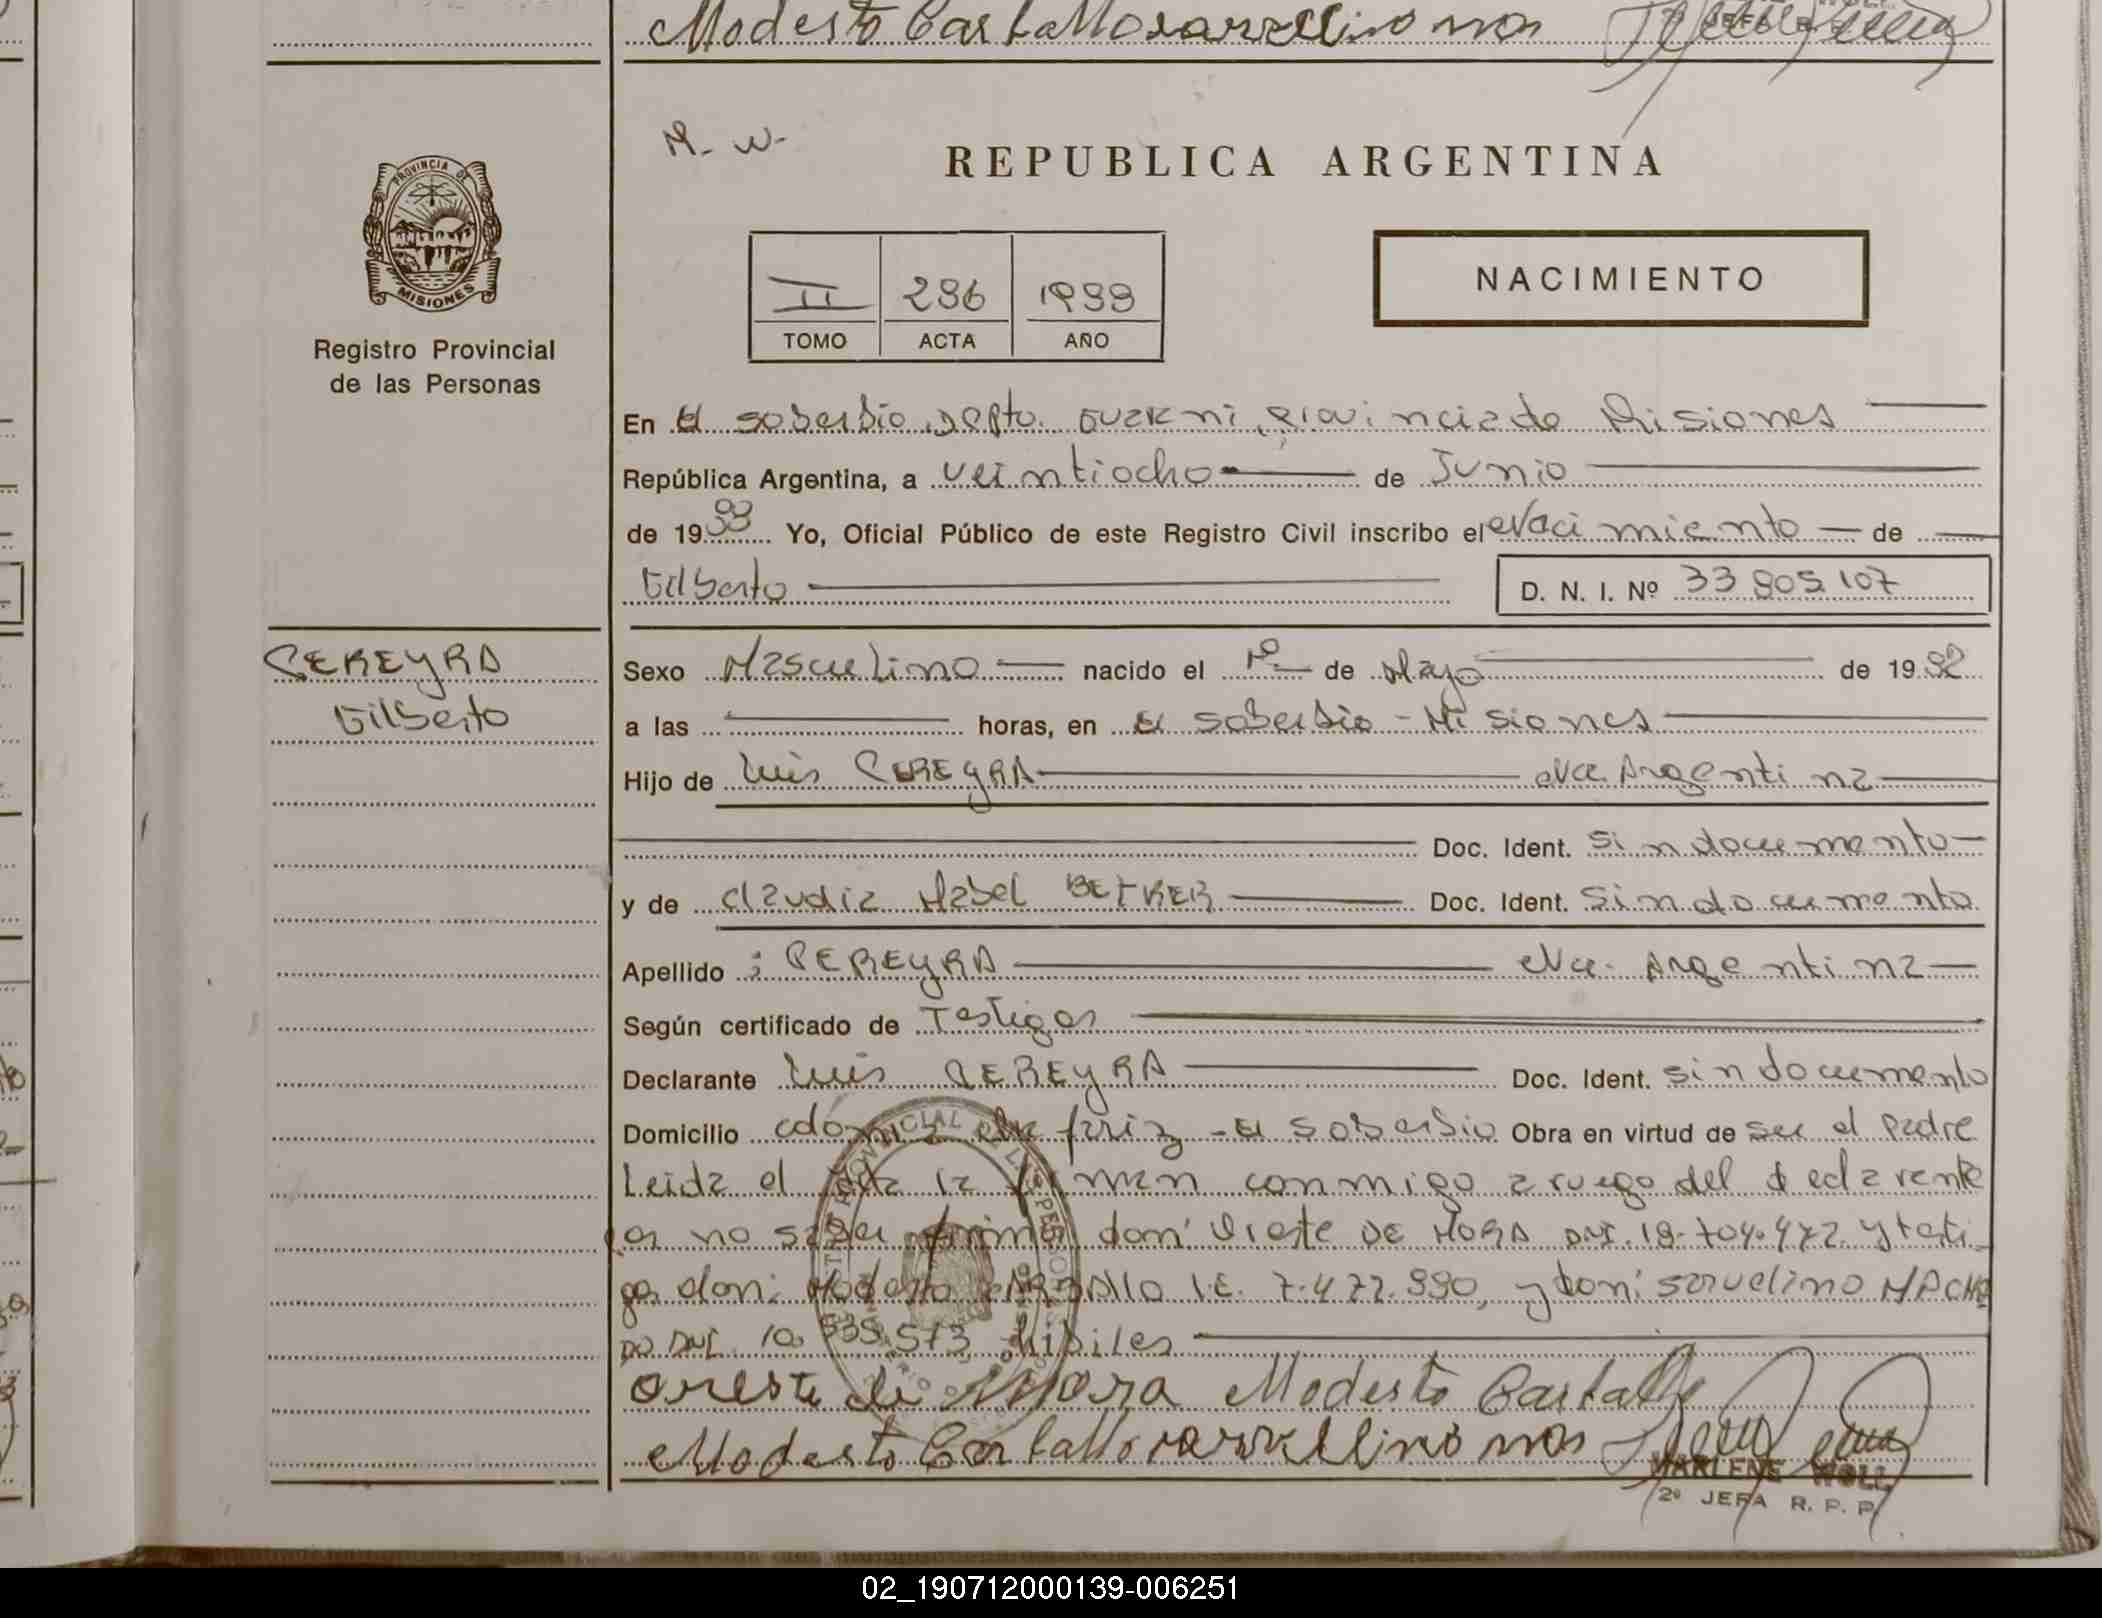 Modesto Carballo sarvelino mas
M. W.
REPUBLICA ARGENTINA
PROVINCIA DE
MISIONES
Registro Provincial
de las Personas
II 296 1999
TOMO ACTA AÑO
NACIMIENTO
En El soberbio, Depto. Guarani, Provincia de Misiones
República Argentina, a veintiocho de Junio
de 19 99 Yo, Oficial Público de este Registro Civil inscribo el Nacimiento de
Gilberto D. N. I. Nº 33.905.107
PEREYRA
Gilberto
Sexo Masculino nacido el 1º de Mayo de 1992
a las horas, en El soberbio - Misiones
Hijo de Luis PEREYRA Nac. Argentina
Doc. Ident. sin documento
y de Claudia Mabel BEIKER Doc. Ident. sin documento
Apellido : PEREYRA Nac. Argentina
Según certificado de Testigos
Declarante Luis PEREYRA Doc. Ident. sin documento
Domicilio colonia feriz - El soberbio Obra en virtud de ser el Padre
Leida el Acta la firman conmigo a ruego del declarante
por no saber firmar don: Oreste DE MORA DNI. 18.704.472 y testi-
gos don: Modesto CARBALLO L.E. 7.472.990, y don: sarvelino MACHA
DO DNI. 10.535.573 Hábiles
oreste de Mora Modesto Carballo
Modesto Carballo sarvellino mas
MARLENE WOLL
2º JEFA R. P. P.
02_190712000139-006251